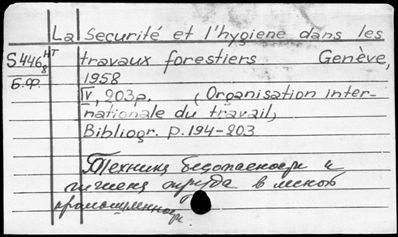 La Securité et l'hygiene dans les
S446₈ НТ travaux forestiers Genève,
Б.Ф. 1958
IV, 203p. (Organisation inter-
nationale du travail,
Bibliogr. p.194-203
Техника безопасности и
гигиена труда в лесной
промышленности